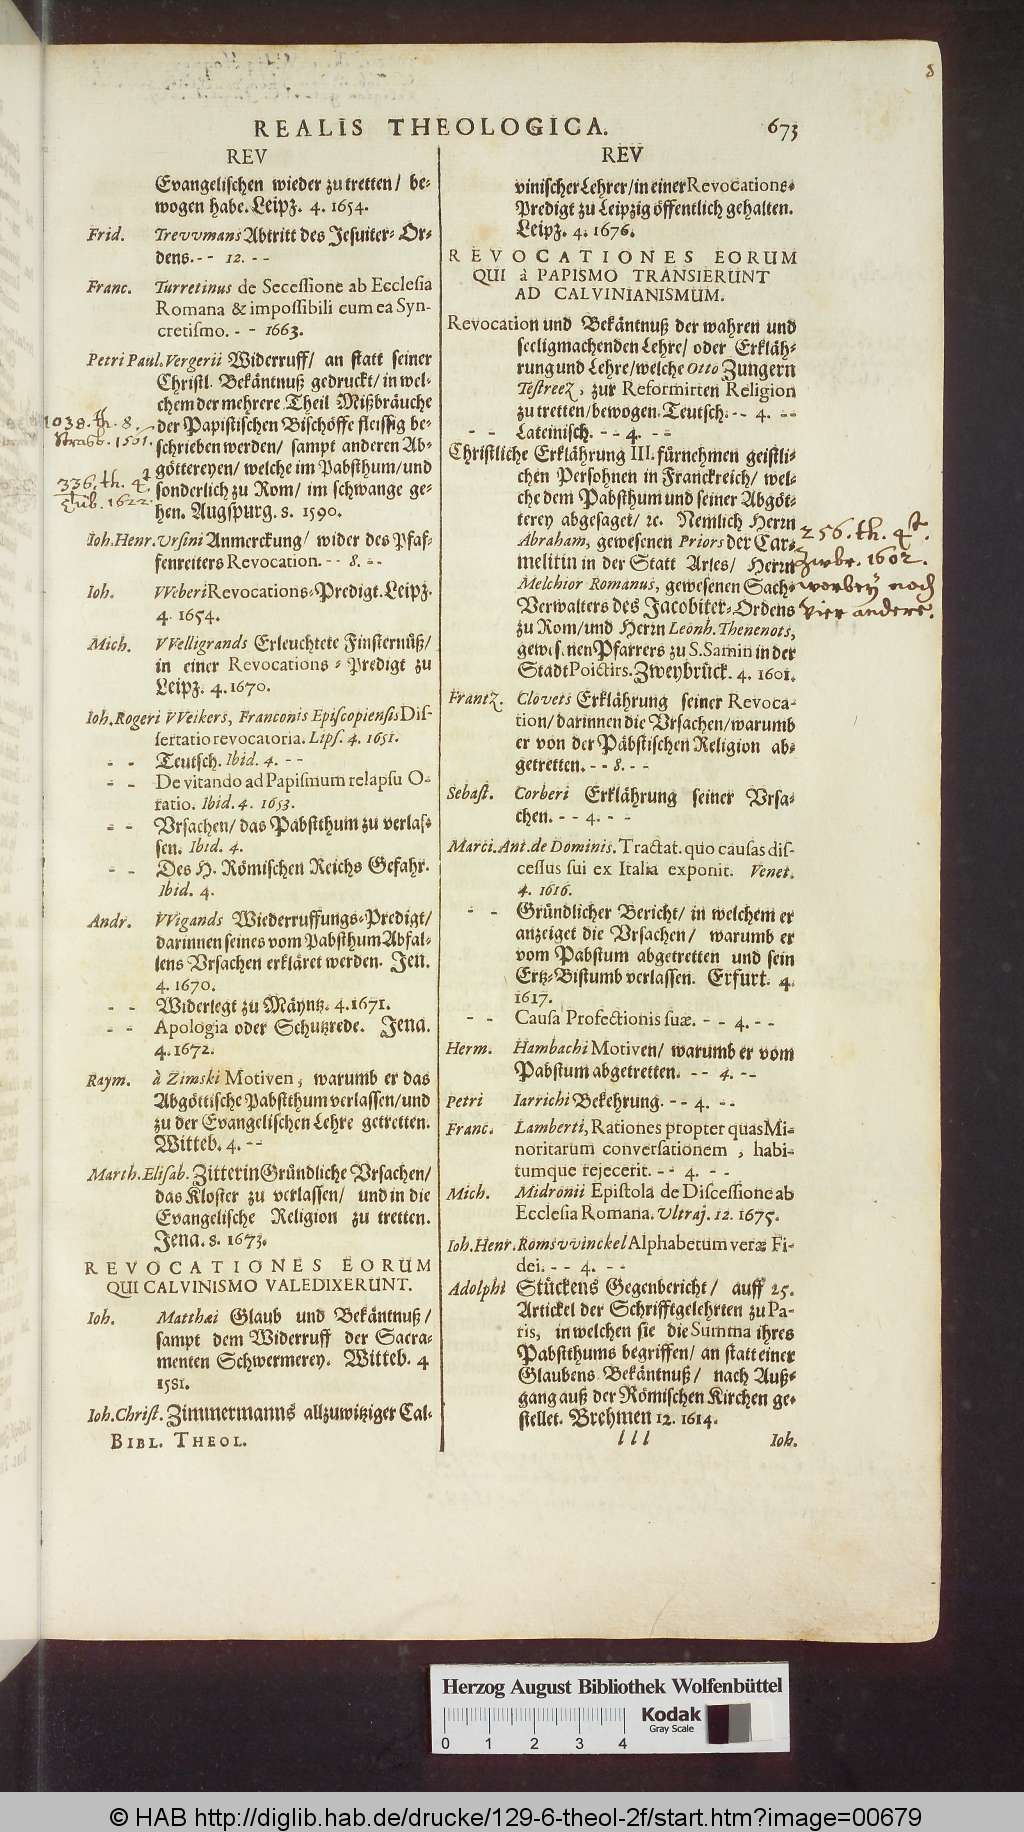 8
REALIS THEOLOGICA.
673
REV
Evangelischen wieder zu tretten/ be-
wogen habe. Leipz. 4. 1654.
Frid. Trevvmans Abtritt des Jesuiter-Or-
dens. - - 12. - -
Franc. Turretinus de Secessione ab Ecclesia
Romana & impossibili cum ea Syn-
cretismo. - - 1663.
Petri Paul. Vergerii Widerruff/ an statt seiner
Christl. Bekäntnuß gedruckt/ in wel-
chem der mehrere Theil Mißbräuche
1038. th. 8.
der Papistischen Bischöffe fleissig be-
Strasb. 1501.
schrieben werden/ sampt anderen Ab-
göttereyen/ welche im Pabsthum/ und
336. th. 4t
sonderlich zu Rom/ im schwange ge-
Tüb. 1622.
hen. Augspurg. 8. 1590.
Ioh. Henr. Ursini Anmerckung/ wider des Pfaf-
fenreiters Revocation. - - 8. - -
Ioh. VVeberi Revocations-Predigt. Leipz.
4. 1654.
Mich. VVelligrands Erleuchtete Finsternüß/
in einer Revocations-Predigt zu
Leipz. 4. 1670.
Ioh. Rogeri VVeikers, Franconis Episcopiensis Dis-
sertatio revocatoria. Lips. 4. 1651.
- - Teutsch. Ibid. 4. - -
- - De vitando ad Papismum relapsu O-
ratio. Ibid. 4. 1653.
- - Vrsachen/ das Pabstthum zu verlas-
sen. Ibid. 4.
- - Des H. Römischen Reichs Gefahr.
Ibid. 4.
Andr. VVigands Wiederruffungs-Predigt/
darinnen seines vom Pabsthum Abfal-
lens Vrsachen erkläret werden. Jen.
4. 1670.
- - Widerlegt zu Mäyntz. 4. 1671.
- - Apologia oder Schutzrede. Jena.
4. 1672.
Raym. à Zimski Motiven, warumb er das
Abgöttische Pabstthum verlassen/ und
zu der Evangelischen Lehre getretten.
Witteb. 4. - -
Marth. Elisab. Zitterin Gründliche Vrsachen/
das Kloster zu verlassen/ und in die
Evangelische Religion zu tretten.
Jena. 8. 1673.
REVOCATIONES EORUM
QUI CALVINISMO VALEDIXERUNT.
Ioh. Matthæi Glaub und Bekäntnuß/
sampt dem Widerruff der Sacra-
menten Schwermerey. Witteb. 4
1581.
Ioh. Christ. Zimmermanns allzuwitziger Cal-
BIBL. THEOL.
REV
vinischer Lehrer/ in einer Revocations-
Predigt zu Leipzig öffentlich gehalten.
Leipz. 4. 1676.
REVOCATIONES EORUM
QUI à PAPISMO TRANSIERUNT
AD CALVINIANISMUM.
Revocation und Bekäntnuß der wahren und
seeligmachenden Lehre/ oder Erkläh-
rung und Lehre/ welche Otto Zungern
Testreez, zur Reformirten Religion
zu tretten/ bewogen. Teutsch. - - 4. - -
- - Lateinisch. - - 4. - -
Christliche Erklährung III. fürnehmen geistli-
chen Persohnen in Franckreich/ wel-
che dem Pabsthum und seiner Abgöt-
terey abgesaget/ ꝛc. Nemlich Herrn
256. th. 4t.
Abraham, gewesenen Priors der Car-
Zwbr. 1602.
melitin in der Statt Arles/ Herrn
Melchior Romanus, gewesenen Sach-
worbey noch
Verwalters des Jacobiter-Ordens
vier andere.
zu Rom/ und Herrn Leonh. Thenenots,
gewesenen Pfarrers zu S. Samin in der
Stadt Poictirs. Zweybrück. 4. 1601.
Frantz. Clovets Erklährung seiner Revoca-
tion/ darinnen die Vrsachen/ warumb
er von der Päbstischen Religion ab-
getretten. - - 8. - -
Sebast. Corberi Erklährung seiner Vrsa-
chen. - - 4. - -
Marci. Ant. de Dominis. Tractat. quo causas dis-
cessus sui ex Italia exponit. Venet.
4. 1616.
- - Gründlicher Bericht/ in welchem er
anzeiget die Vrsachen/ warumb er
vom Pabstum abgetretten und sein
Ertz-Bistumb verlassen. Erfurt. 4.
1617.
- - Causa Profectionis suæ. - - 4. - -
Herm. Hambachi Motiven/ warumb er vom
Pabstum abgetretten. - - 4. - -
Petri Iarrichi Bekehrung. - - 4. - -
Franc. Lamberti, Rationes propter quas Mi-
noritarum conversationem, habi-
tumque rejecerit. - - 4. - -
Mich. Midronii Epistola de Discessione ab
Ecclesia Romana. Ultraj. 12. 1675.
Ioh. Henr. Romsvvinckel Alphabetum veræ Fi-
dei. - - 4. - -
Adolphi Stückens Gegenbericht/ auff 25.
Artickel der Schrifftgelehrten zu Pa-
ris, in welchen sie die Summa ihres
Pabstthums begriffen/ an statt einer
Glaubens Bekäntnuß/ nach Auß-
gang auß der Römischen Kirchen ge-
stellet. Brehmen 12. 1614.
lll
Ioh.
Herzog August Bibliothek Wolfenbüttel
Kodak
Gray Scale
0 1 2 3 4
© HAB http://diglib.hab.de/drucke/129-6-theol-2f/start.htm?image=00679